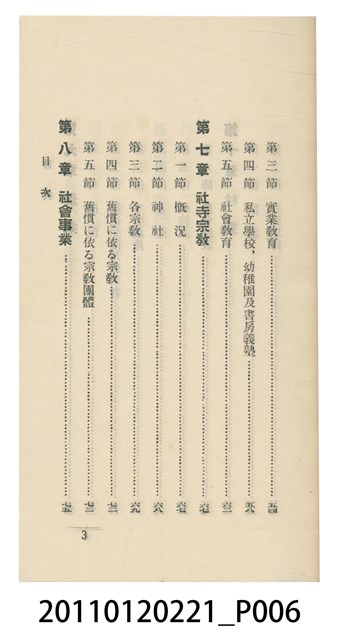 第三節 實業教育 五四
第四節 私立學校、幼稚園及書房義塾 五八
第五節 社會教育 六二
第七章 社寺宗教 六七
第一節 概況 六七
第二節 神社 六八
第三節 各宗教 六九
第四節 舊慣に依る宗教 七二
第五節 舊慣に依る宗教團體 七三
第八章 社會事業 七五
目次
3
20110120221_P006